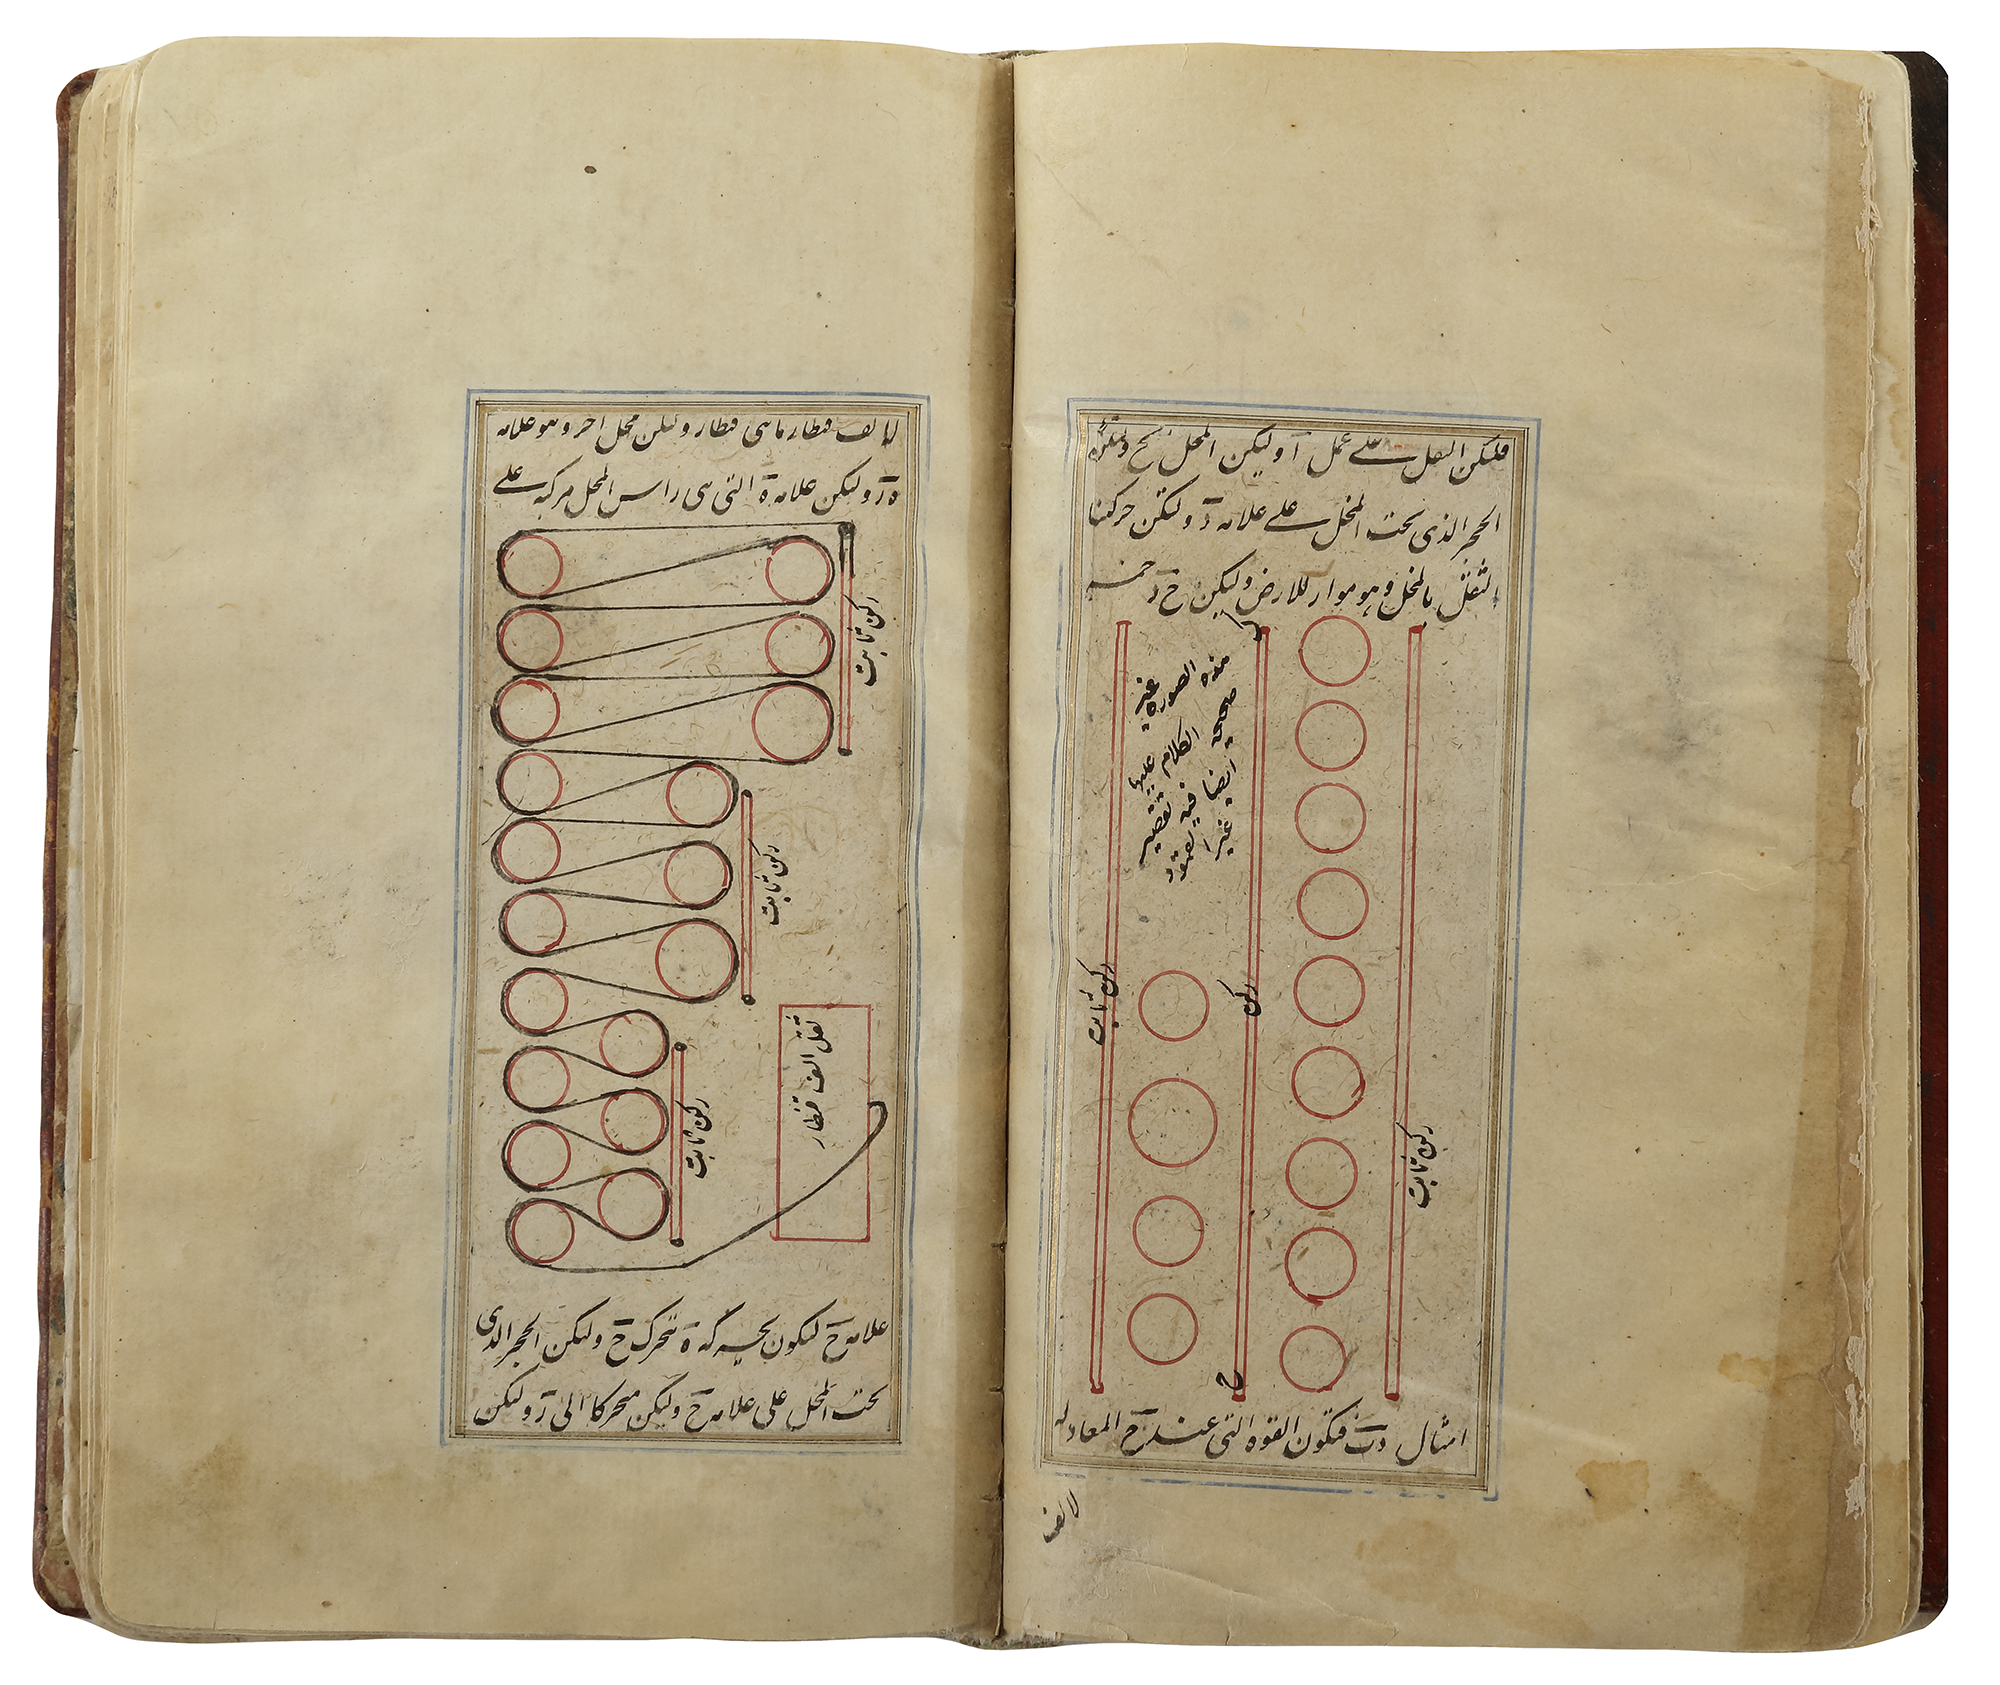 فليكن الثقل على عمل آ وليكن المخل بح
الحجر الذى تحت المخل على علامه د وليكن حركتنا
الثقل بالمخل وهو مواز للارض وليكن ح د خمسه
هذه الصورة غير
صحيحه الكلام عليها
ايضا فيه تقصير
ركن ثابت
ركن
ركن ثابت
امثال دب فتكون القوه التى عند ح المعادله
لالف
لالف قنطار مائتى قنطار وليكن مخل اخر وهو علامه
ه ز وليكن علامه ه التى هى راس المخل مركبه على
ركن ثابت
ركن ثابت
ركن ثابت
ثقل الف قنطار
علامه ح ليكون بحركه ه تتحرك ح وليكن الحجر الذى
تحت المخل على علامه ح وليكن محركا الى ز وليكن